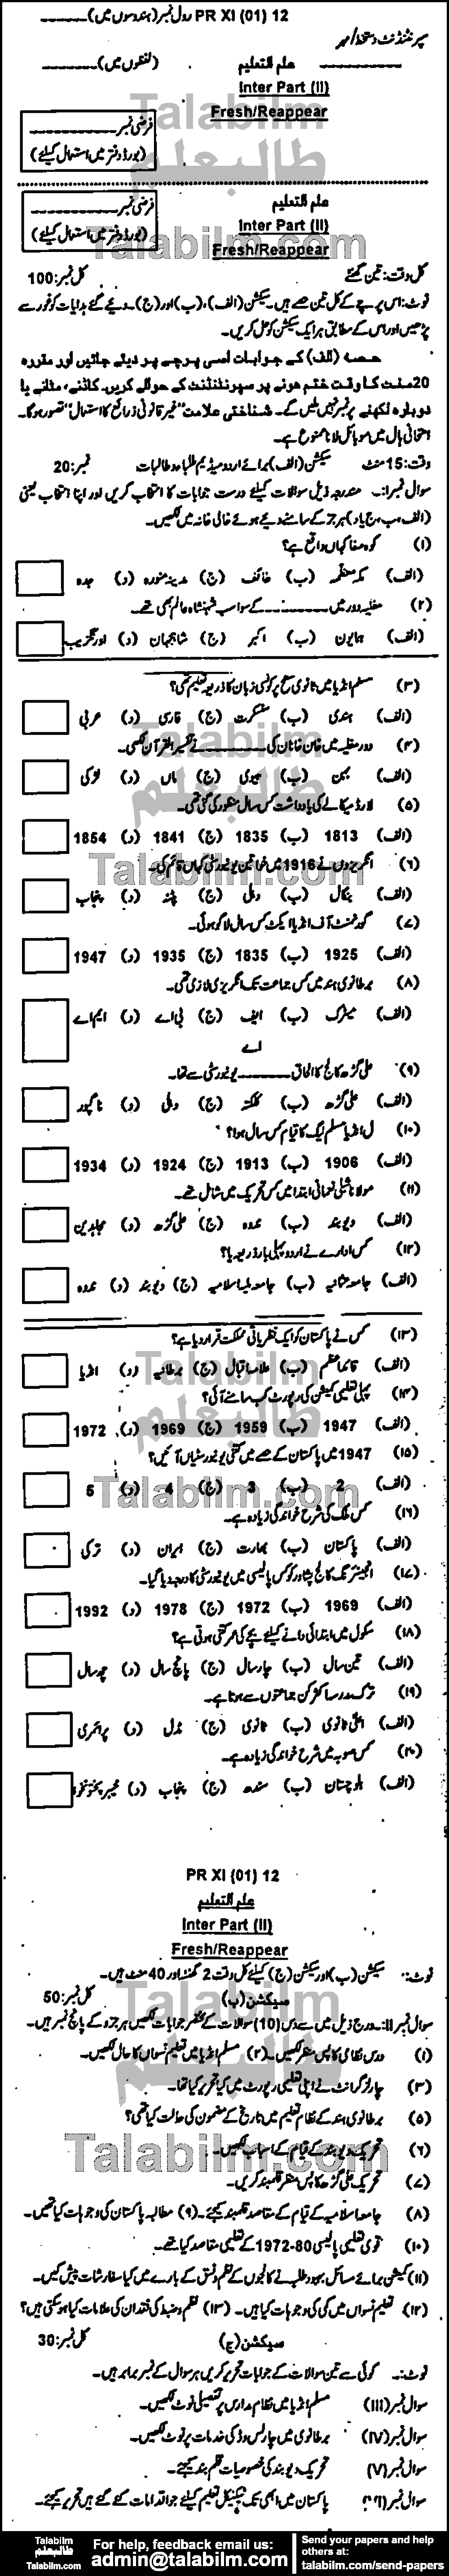 PR XI (01) 12 رول نمبر (ہندسوں میں)
سپرنٹنڈنٹ دستخط/مہر
علم التعلیم (لفظوں میں)
Inter Part (II)
Fresh/Reappear
فرضی نمبر
(بورڈ دفتر میں استعمال کیلئے)
علم التعلیم
Inter Part (II)
Fresh/Reappear
فرضی نمبر
(بورڈ دفتر میں استعمال کیلئے)
کل وقت: تین گھنٹے کل نمبر: 100
نوٹ: اس پرچے کے کل تین حصے ہیں۔ سیکشن (الف)، (ب) اور (ج)۔ دیئے گئے ہدایات کو غور سے
پڑھیں اور اس کے مطابق ہر ایک سیکشن کو حل کریں۔
حصہ (الف) کے جوابات اسی پرچے پر دیئے جائیں اور مقررہ
20 منٹ کا وقت ختم ہونے پر سپرنٹنڈنٹ کے حوالے کریں۔ کاٹنے، مٹانے یا
دوبارہ لکھنے پر نمبر نہیں ملیں گے۔ شناختی علامت "غیر قانونی ذرائع کا استعمال" تصور ہوگا۔
امتحانی ہال میں موبائل لانا ممنوع ہے۔
وقت: 15 منٹ سیکشن (الف) برائے اردو میڈیم طلباء و طالبات نمبر: 20
سوال نمبر I:۔ مندرجہ ذیل سوالات کیلئے درست جوابات کا انتخاب کریں اور اپنا انتخاب یعنی
(الف، ب، ج یا د) ہر جز کے سامنے دیئے ہوئے خالی خانہ میں لکھیں۔
(۱) کوہ صفا کہاں واقع ہے؟
(الف) مکہ معظمہ (ب) طائف (ج) مدینہ منورہ (د) جدہ
(۲) مغلیہ دور میں ــــــــ کے سوا سب شہنشاہ عالم بھی تھے۔
(الف) ہمایون (ب) اکبر (ج) شاہجہان (د) اورنگزیب
(۳) مسلم انڈیا میں ثانوی سطح پر کونسی زبان کا ذریعہ تعلیم تھی؟
(الف) ہندی (ب) سنسکرت (ج) فارسی (د) عربی
(۴) دور مغلیہ میں خان خاناں کی ــــــــ نے تفسیر القرآن لکھی۔
(الف) بہن (ب) بیوی (ج) ماں (د) لڑکی
(۵) لارڈ میکالے کی یادداشت کس سال منظور کی گئی تھی۔
(الف) 1813 (ب) 1835 (ج) 1841 (د) 1854
(۶) انگریزوں نے 1916 میں خواتین یونیورسٹی کہاں قائم کی۔
(الف) بنگال (ب) دہلی (ج) پٹنہ (د) پنجاب
(۷) گورنمنٹ آف انڈیا ایکٹ کس سال لاگو ہوئی۔
(الف) 1925 (ب) 1835 (ج) 1935 (د) 1947
(۸) برطانوی ہند میں کس جماعت تک انگریزی لازمی تھی۔
(الف) میٹرک (ب) ایف اے (ج) بی اے (د) ایم اے
(۹) علی گڑھ کالج کا الحاق ــــــــ یونیورسٹی سے تھا۔
(الف) علی گڑھ (ب) کلکتہ (ج) دہلی (د) ناگپور
(۱۰) ل انڈیا مسلم لیگ کا قیام کس سال ہوا؟
(الف) 1906 (ب) 1913 (ج) 1924 (د) 1934
(۱۱) مولانا شبلی نعمانی ابتدا میں کس تحریک میں شامل تھے۔
(الف) دیوبند (ب) ندوہ (ج) علی گڑھ (د) مجاہدین
(۱۲) کس ادارے نے اردو پہلی بار ذریعہ یا؟
(الف) جامعہ عثمانیہ (ب) جامعہ ملیہ اسلامیہ (ج) دیوبند (د) ندوہ
(۱۳) کس نے پاکستان کو ایک نظریاتی مملکت قرار دیا ہے؟
(الف) قائداعظم (ب) علامہ اقبال (ج) برطانیہ (د) انڈیا
(۱۴) پہلی تعلیمی کمیشن کی رپورٹ کب سامنے آئی؟
(الف) 1947 (ب) 1959 (ج) 1969 (د) 1972
(۱۵) 1947 میں پاکستان کے حصے میں کتنی یونیورسٹیاں آئیں؟
(الف) 2 (ب) 3 (ج) 4 (د) 5
(۱۶) کس ملک کی شرح خواندگی زیادہ ہے۔
(الف) پاکستان (ب) بھارت (ج) ایران (د) ترکی
(۱۷) انجینئرنگ کالج پشاور کو کس پالیسی میں یونیورسٹی کا درجہ دیا گیا۔
(الف) 1969 (ب) 1972 (ج) 1978 (د) 1992
(۱۸) سکول میں ابتدائی دانے کیلئے بچے کی عمر کتنی ہوتی ہے؟
(الف) تین سال (ب) چار سال (ج) پانچ سال (د) چھ سال
(۱۹) ترک مدرسہ اکثر کن جماعتوں سے ہوتا ہے۔
(الف) اعلیٰ ثانوی (ب) ثانوی (ج) مڈل (د) پرائمری
(۲۰) کس صوبہ میں شرح خواندگی زیادہ ہے۔
(الف) بلوچستان (ب) سندھ (ج) پنجاب (د) خیبر پختونخوا
PR XI (01) 12
علم التعلیم
Inter Part (II)
Fresh/Reappear
نوٹ:۔ سیکشن (ب) اور سیکشن (ج) کیلئے کل وقت 2 گھنٹہ اور 40 منٹ ہیں۔
سیکشن (ب) کل نمبر: 50
سوال نمبر II:۔ درج ذیل میں سے دس (10) سوالات کے مختصر جوابات لکھیں ہر جز کے پانچ نمبر ہیں۔
(۱) درس نظامی کا پس منظر لکھیں۔ (۲) مسلم انڈیا میں تعلیم نسواں کا حال لکھیں۔
(۳) چارلز گرانٹ نے اپنی تعلیمی رپورٹ میں کیا تحریر کیا تھا۔
(۵) برطانوی ہند کے نظام تعلیم میں تاریخ کے مضمون کی حالت کیا تھی؟
(۶) تحریک دیوبند کے قیام کے اسباب لکھیں۔
(۷) تحریک علی گڑھ کا پس منظر قلمبند کریں۔
(۸) جامعہ اسلامیہ کے قیام کے مقاصد قلمبند کیجئے۔ (۹) مطالبہ پاکستان کی وجوہات کیا تھیں۔
(۱۰) قومی تعلیمی پالیسی 80-1972 کے تعلیمی مقاصد کیا تھے۔
(۱۱) کمیشن برائے مسائل بہبود طلبہ نے کالجوں کے نظم و نسق کے بارے میں کیا سفارشات پیش کیں۔
(۱۲) تعلیم نسواں میں کمی کی وجوہات کیا ہیں۔ (۱۳) نظم و ضبط کی فقدان کی علامات کیا ہو سکتی ہیں؟
سیکشن (ج) کل نمبر: 30
نوٹ:۔ کوئی سے تین سوالات کے جوابات تحریر کریں ہر سوال کے نمبر برابر ہیں۔
سوال نمبر (III) مسلم انڈیا میں نظام مدارس پر تفصیلی نوٹ لکھیں۔
سوال نمبر (IV) برطانوی میں چارلس ووڈ کی خدمات پر نوٹ لکھیں۔
سوال نمبر (V) تحریک دیوبند کی خصوصیات قلم بند کیجئے۔
سوال نمبر پاکستان میں ابھی تک ٹیکنیکل تعلیم کیلئے جو اقدامات کئے گئے ہیں تحریر کیجئے۔
Talabilm
طالبعلم
Talabilm.com
Talabilm
طالبعلم
Talabilm.com
For help, feedback email us:
admin@talabilm.com
Send your papers and help others at:
talabilm.com/send-papers